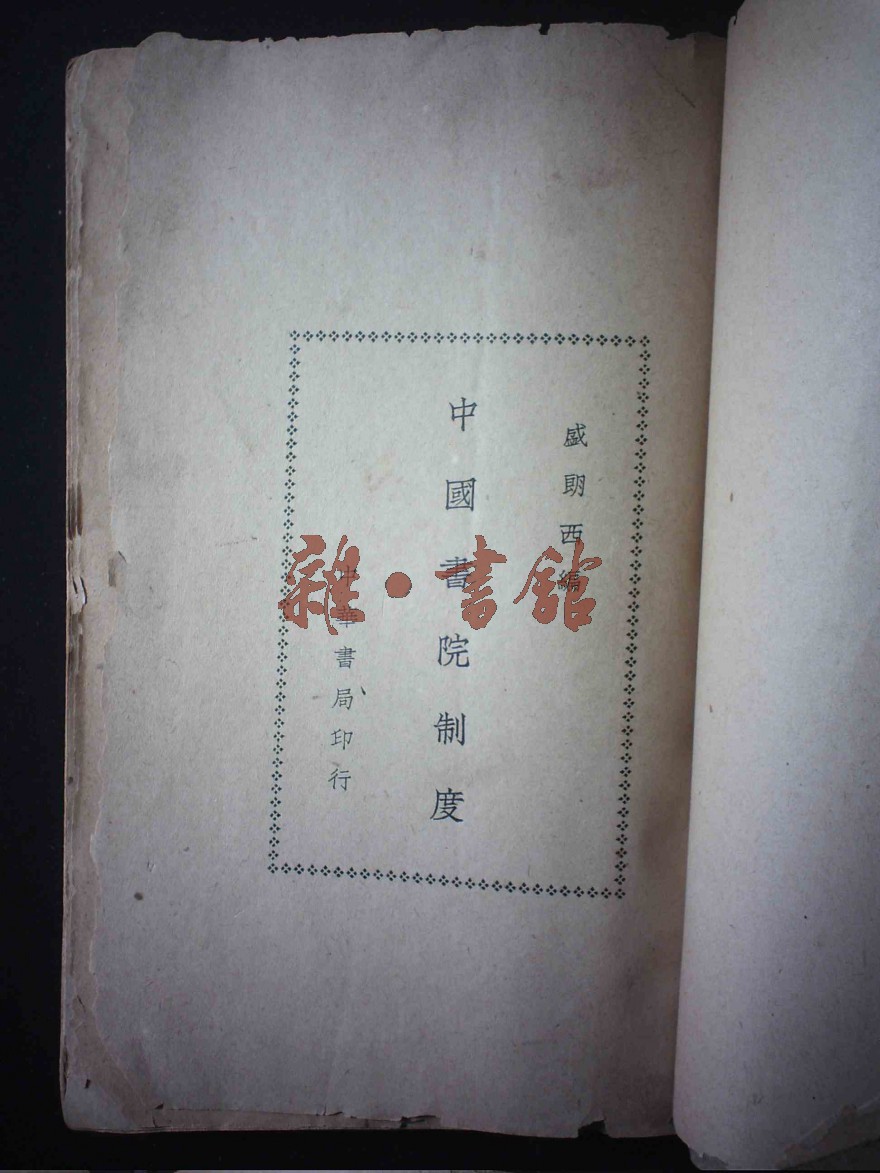 盛朗西編
中國書院制度
中華書局印行
雜·書館